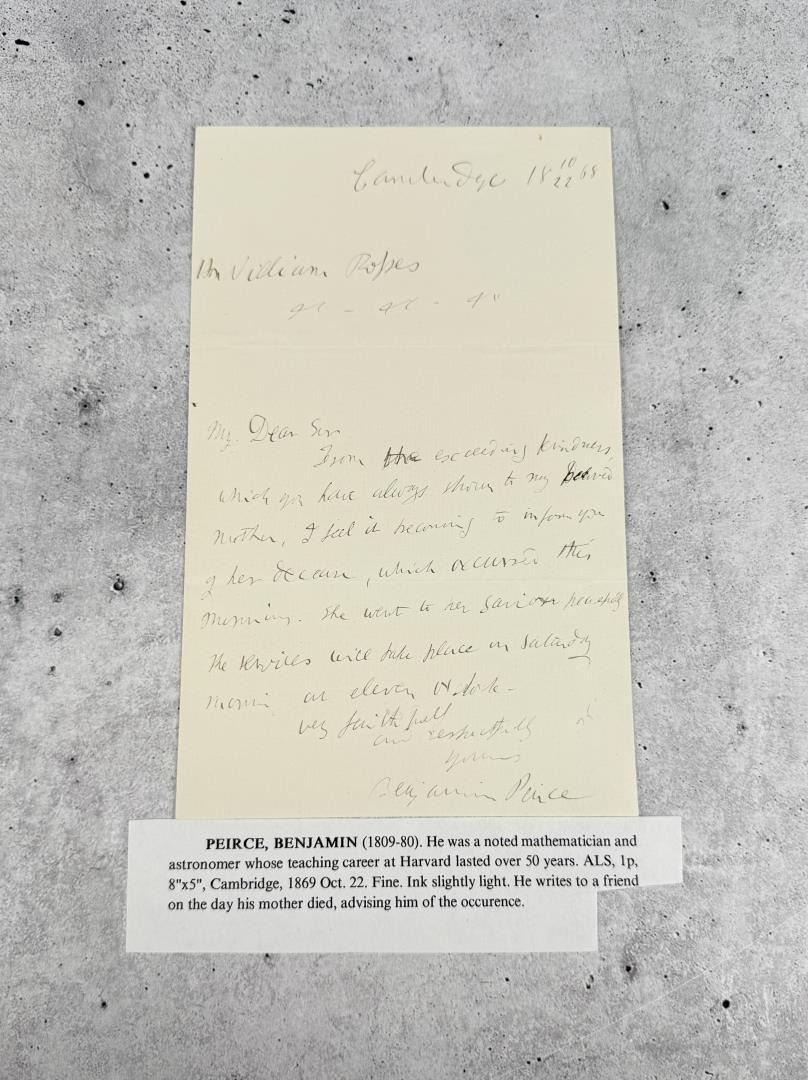 Cambridge 18 10/22 68
Hon William Ropes
My Dear Sir
From the exceeding kindness,
which you have always shown to my beloved
mother, I feel it becoming to inform you
of her decease, which occurred this
morning. She went to her Saviour peacefully
The services will take place on Saturday
morning at eleven o'clock -
very faithfull
and respectfully
yours
Benjamin Peirce
PEIRCE, BENJAMIN (1809-80). He was a noted mathematician and
astronomer whose teaching career at Harvard lasted over 50 years. ALS, 1p,
8"x5", Cambridge, 1869 Oct. 22. Fine. Ink slightly light. He writes to a friend
on the day his mother died, advising him of the occurence.